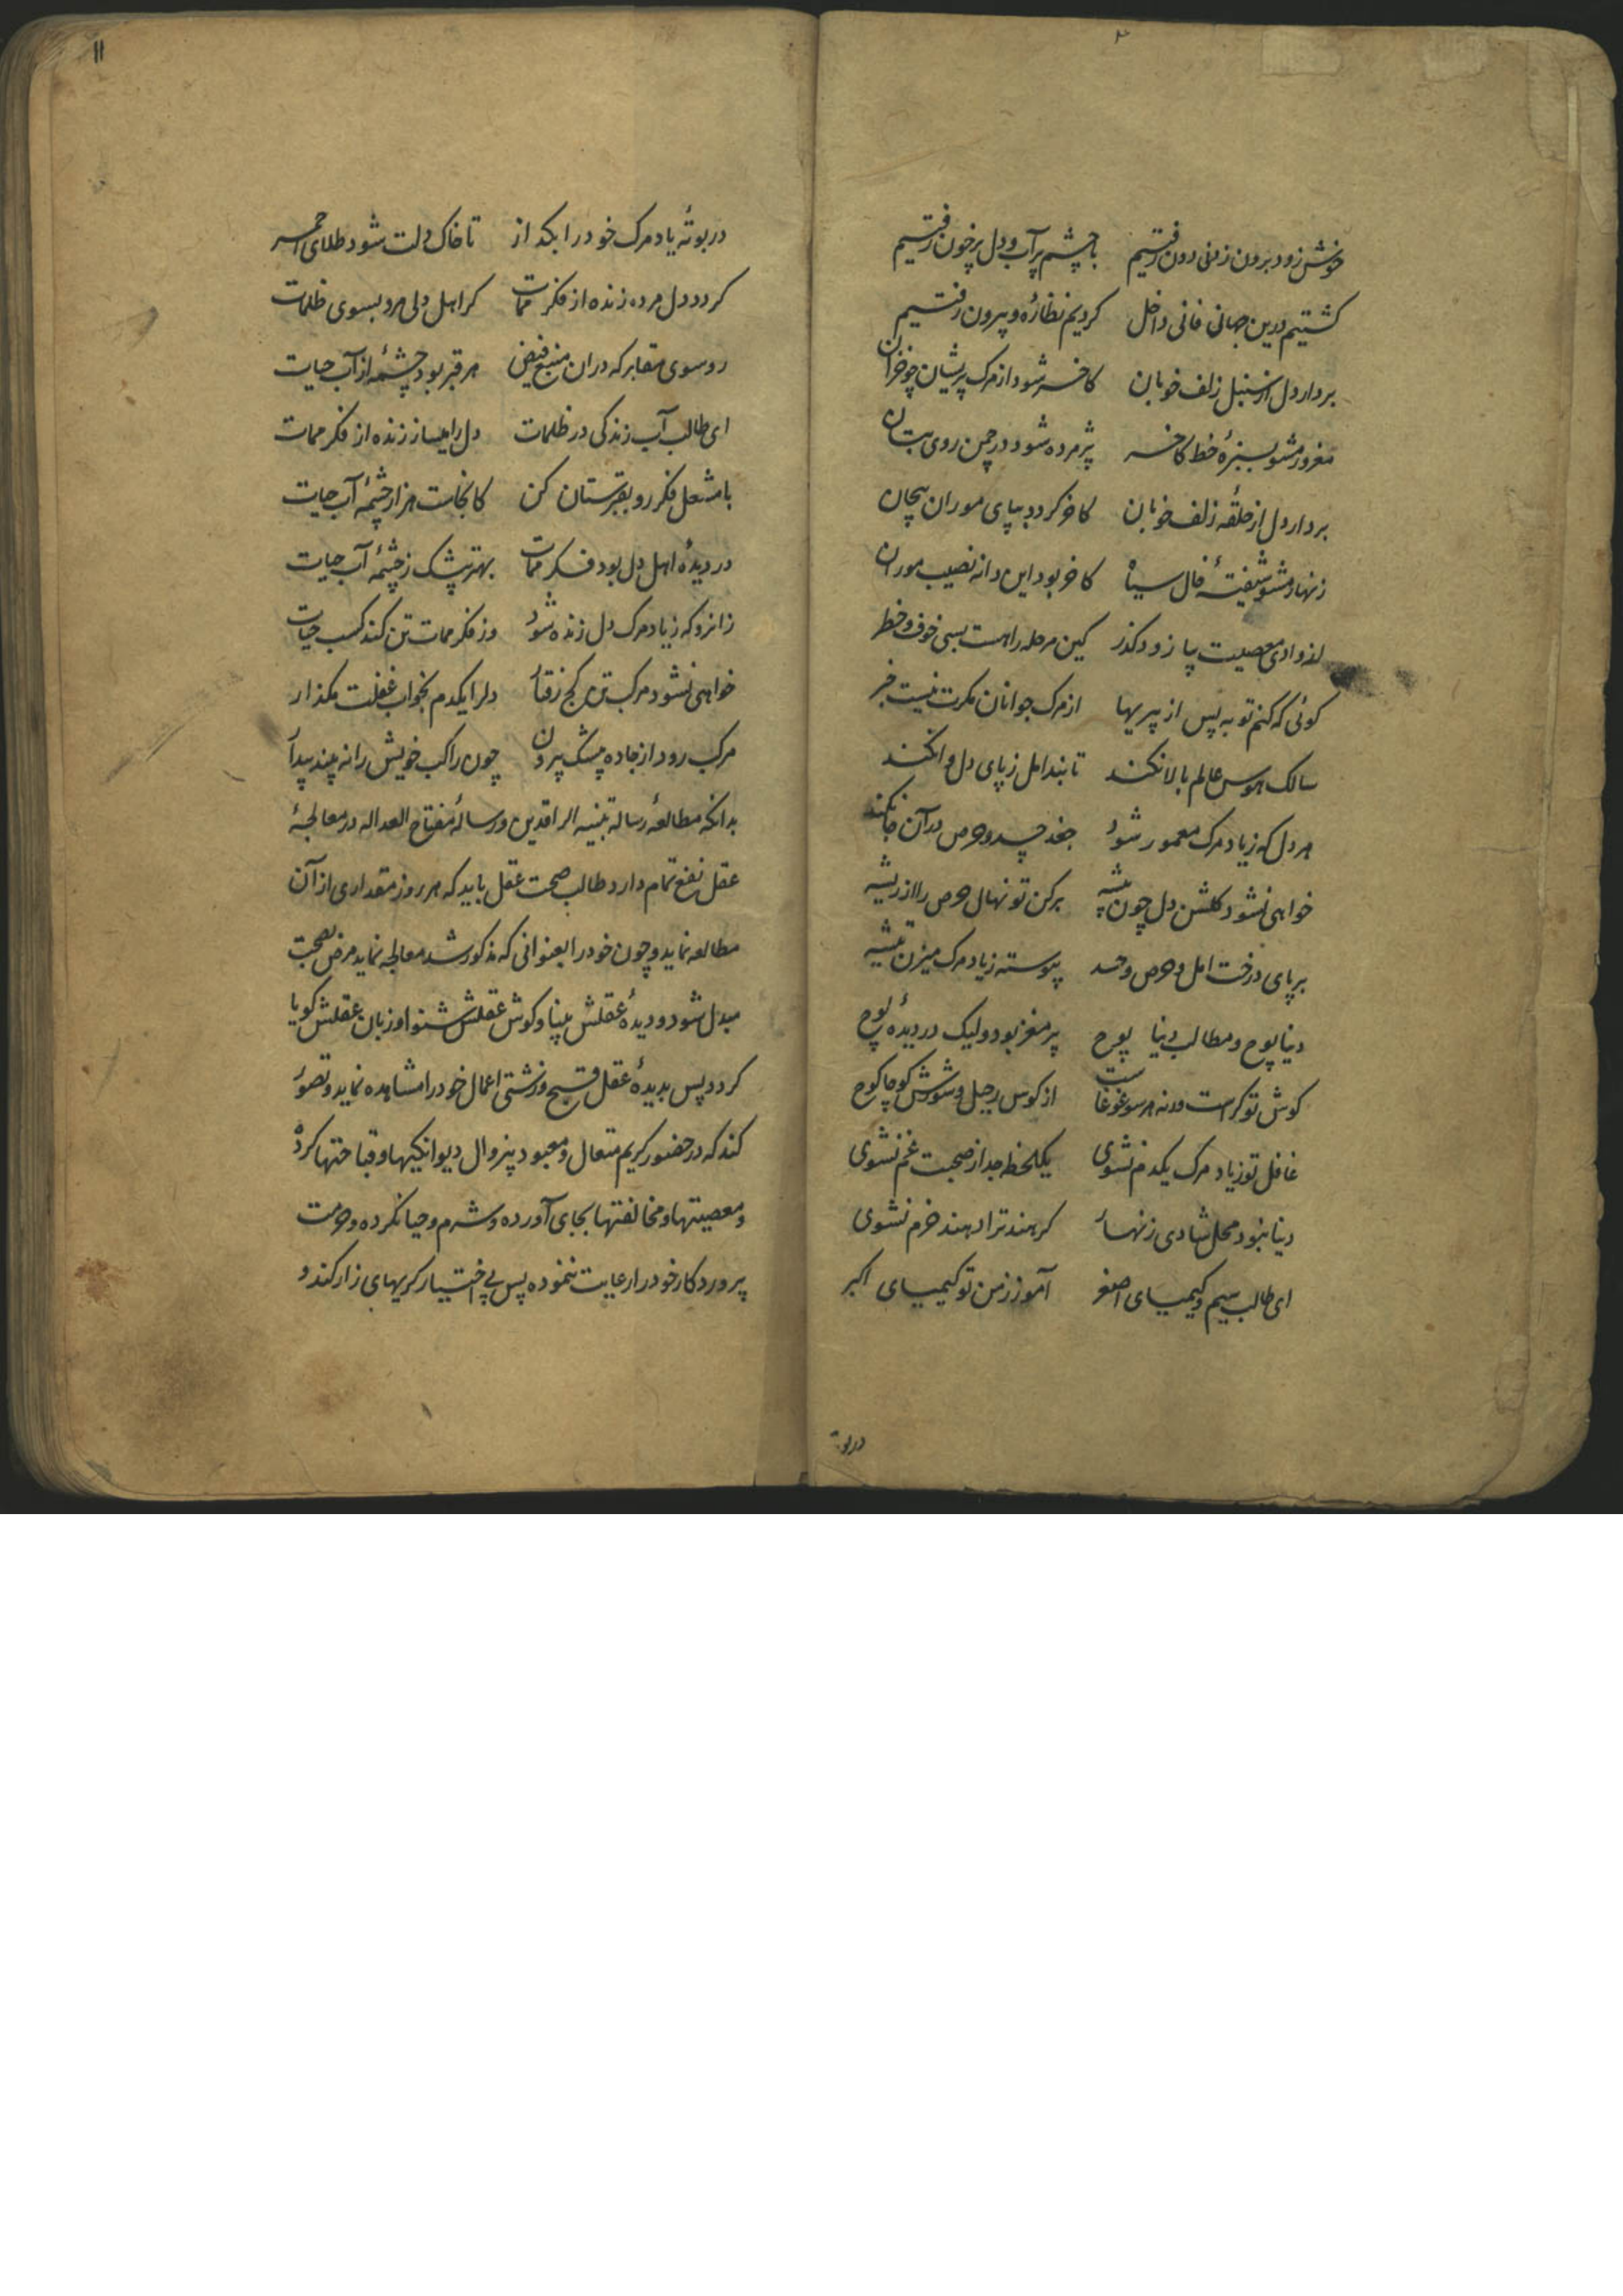 خوش زود برون ز دنیی دون رفتیم با چشم پر آب و دل پر خون رفتیم
کشتیم درین جهان فانی داخل کردیم نظارهٔ و بیرون رفتیم
بردار دل از سنبل زلف خوبان کاخر شود از مرک پریشان چو خزان
مغرور مشو بسبزهٔ خط کاخر پژمرده شود در چمن روی بتان
بردار دل از حلقهٔ زلف خوبان کاخر کردد بپای موران پیچان
زنهار مشو شیفتهٔ خال سیاه کاخر بود این دانه نصیب موران
از وادی معصیت بیا زود کذر کین مرحله راهست بسی خوف و خطر
کوئی که کنم توبه پس از پیریها از مرک جوانان مکرت نیست خبر
سالک هوس عالم بالا نکند تا بند امل ز پای دل وا نکند
هر دل که ز یاد مرک معمور شود جغد حسد و حرص در آن جا نکند
خواهی نشود کلشن دل چون بیشه برکن تو نهال حرص را از ریشه
بر پای درخت امل و حرص و حسد پیوسته ز یاد مرک میزن تیشه
دنیا پوچ و مطالب دنیا پوچ پر مغز بود ولیک در دیدهٔ پوچ
کوش تو کر است ورنه هر سو غوغاست از کوس رحیل و شورش کوچا کوچ
غافل تو ز یاد مرک یکدم نشوی یکلحظه جدا ز صحبت غم نشوی
دنیا نبود محل شادی زنهار کر هند ترا دهند خرم نشوی
ای طالب سیم و کیمیای اصغر آموز ز من تو کیمیای اکبر
در بوته
۱۱
در بوتهٔ یاد مرک خود را بکداز تا خاک دلت شود طلای احمر
کردد دل مرده زنده از فکر ممات کر اهل دلی مرو بسوی ظلمات
رو سوی مقابر که در ان منبع فیض هر قبر بود چشمهٔ از آب حیات
ای طالب آب زندکی در ظلمات دل را میساز زنده از فکر ممات
با مشعل فکر رو بقبرستان کن کانجاست هزار چشمهٔ آب حیات
در دیدهٔ اهل دل بود فکر ممات بهتر بیشک ز چشمهٔ آب حیات
زانرو که ز یاد مرک دل زنده شود وز فکر ممات تن کند کسب حیات
خواهی نشود مرکب تن کج رفتار دلرا یکدم بخواب غفلت مکذار
مرکب رود از جاده بیشک بیرون چون راکب خویش را نه بیند بیدار
بدانکه مطالعهٔ رساله تنبیه الراقدین و رسالهٔ مفتاح العداله در معالجهٔ
عقل نفع تمام دارد طالب صحت عقل باید که هر روز مقداری از آن
مطالعه نماید و چون خود را بعنوانی که مذکور شد معالجه نماید مرض بصحبت
مبدل شود و دیدهٔ عقلش بینا و کوش عقلش شنوا و زبان عقلش کویا
کردد پس بدیدهٔ عقل قبیح و زشتی اعمال خود را مشاهده نماید و تصور
کند که در حضور کریم متعال و معبود بیزوال دیوانکیها و قباحتها کرده
و معصیتها و مخالفتها بجای آورده و شرم و حیا نکرده و حرمت
پروردکار خود را رعایت ننموده پس بی اختیار کریهای زار کند و